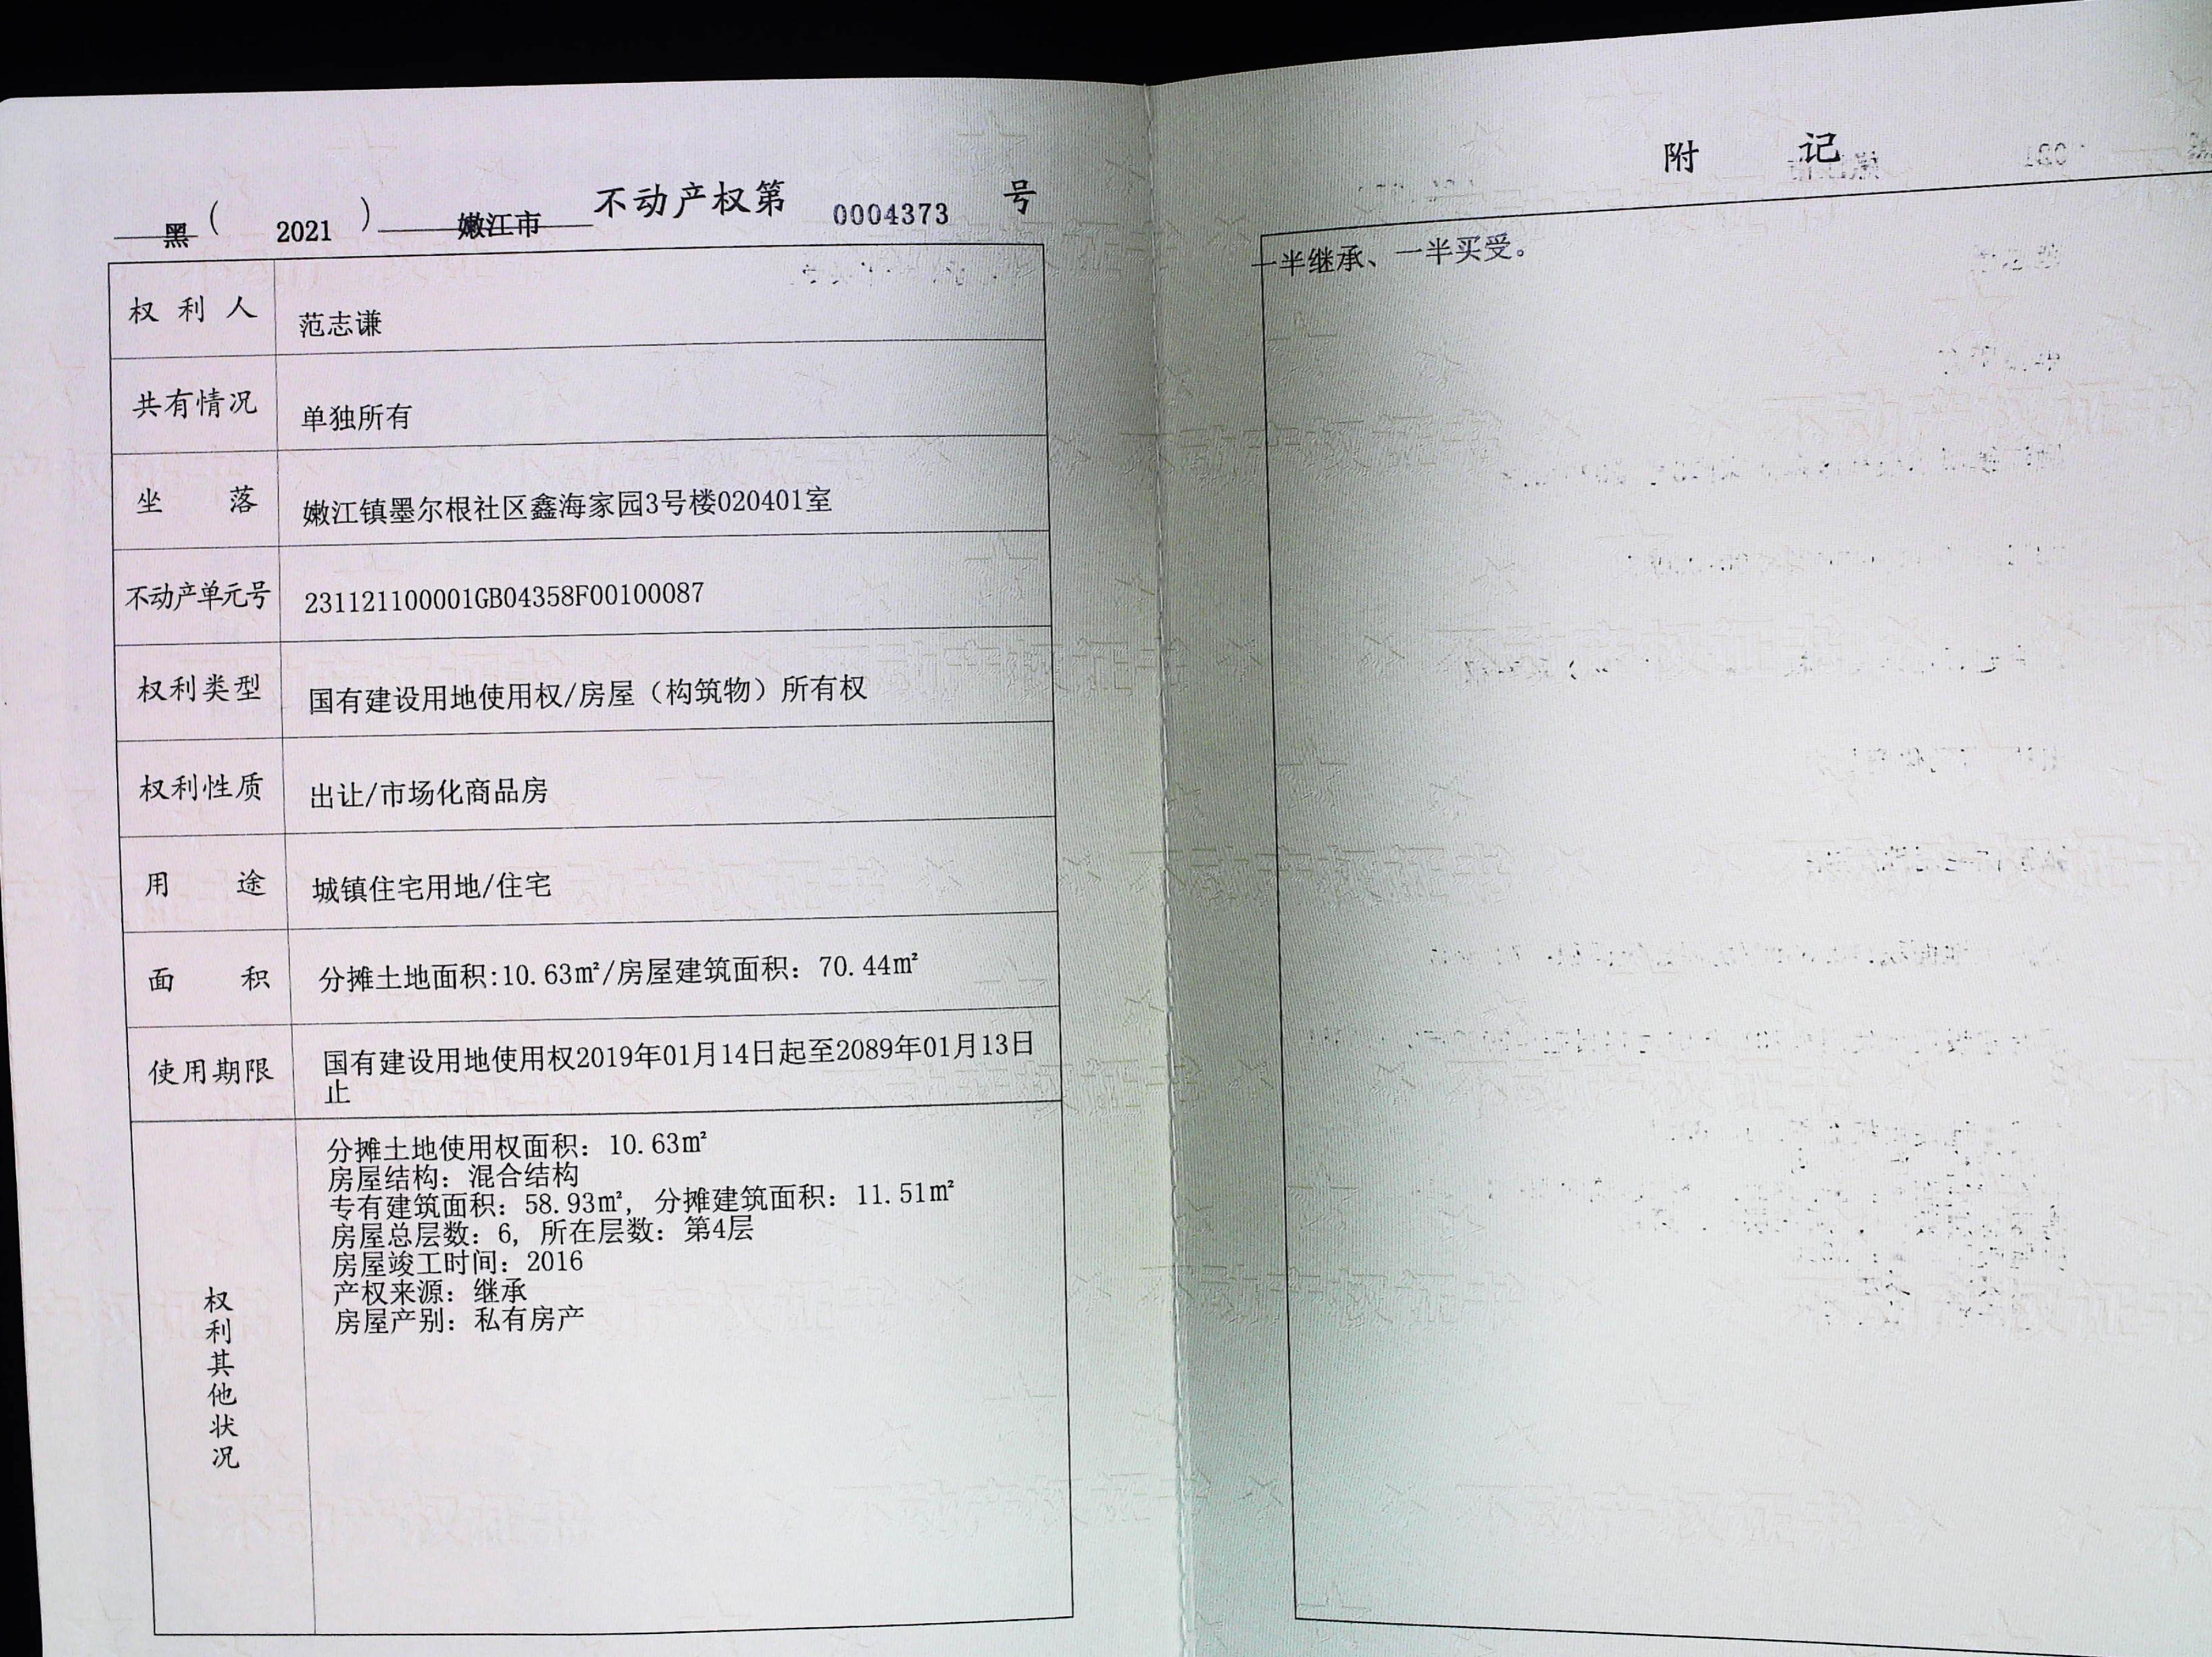 黑（2021）嫩江市不动产权第0004373号
权利人 范志谦
共有情况 单独所有
坐落 嫩江镇墨尔根社区鑫海家园3号楼020401室
不动产单元号 231121100001GB04358F00100087
权利类型 国有建设用地使用权/房屋（构筑物）所有权
权利性质 出让/市场化商品房
用途 城镇住宅用地/住宅
面积 分摊土地面积:10.63㎡/房屋建筑面积：70.44㎡
使用期限 国有建设用地使用权2019年01月14日起至2089年01月13日
止
权利其他状况
分摊土地使用权面积：10.63㎡
房屋结构：混合结构
专有建筑面积：58.93㎡，分摊建筑面积：11.51㎡
房屋总层数：6，所在层数：第4层
房屋竣工时间：2016
产权来源：继承
房屋产别：私有房产
附记
一半继承、一半买受。